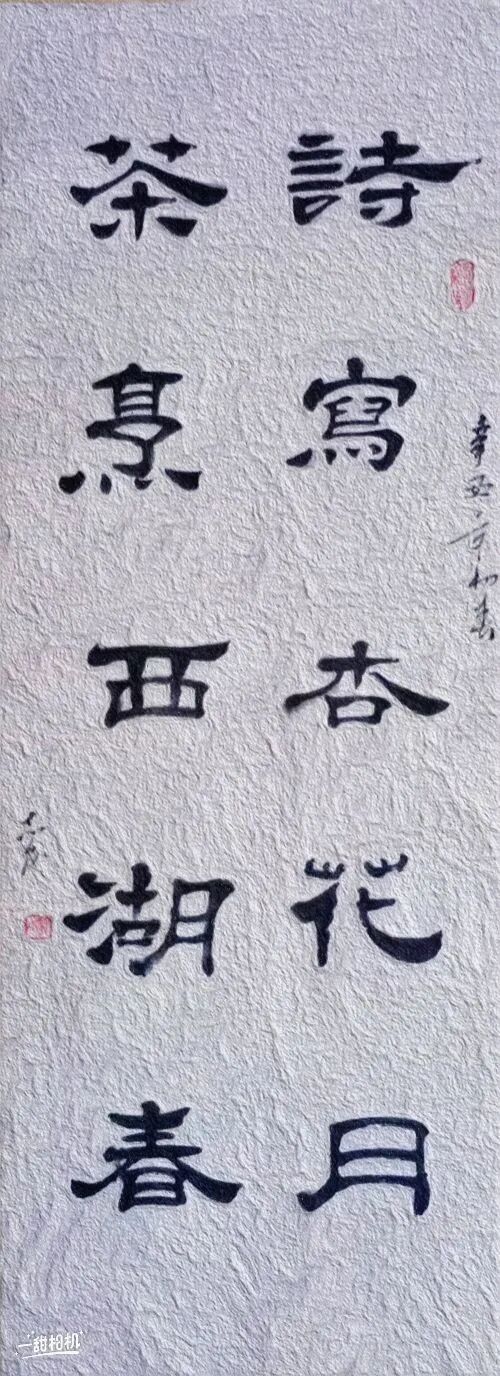 詩寫杏花月
茶烹西湖春
辛丑年初春
一甜相机